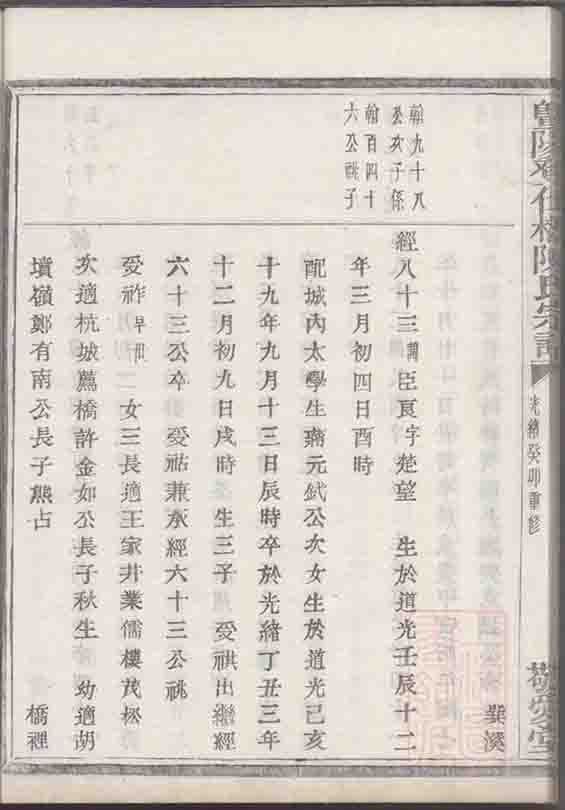 暨陽仕橋陳氏宗譜
光緒癸卯重修
敬愛堂
巽溪
翰九十八
公次子係
翰百四十
六公祧子
經八十三諱臣良字楚望 生於道光壬辰十二
年三月初四日酉時
配城內太學生元公次女生於道光己亥
十九年九月十三日辰時卒於光緒丁丑三年
十二月初九日戌時 生三子 受祺出繼經
六十三公卒 受祜兼承經六十三公祧
受祚早世 女三長適王家井業儒樓茂松
次適杭城薦橋許金如公長子秋生 幼適胡
墳嶺鄭有南公長子熊占
橋裡